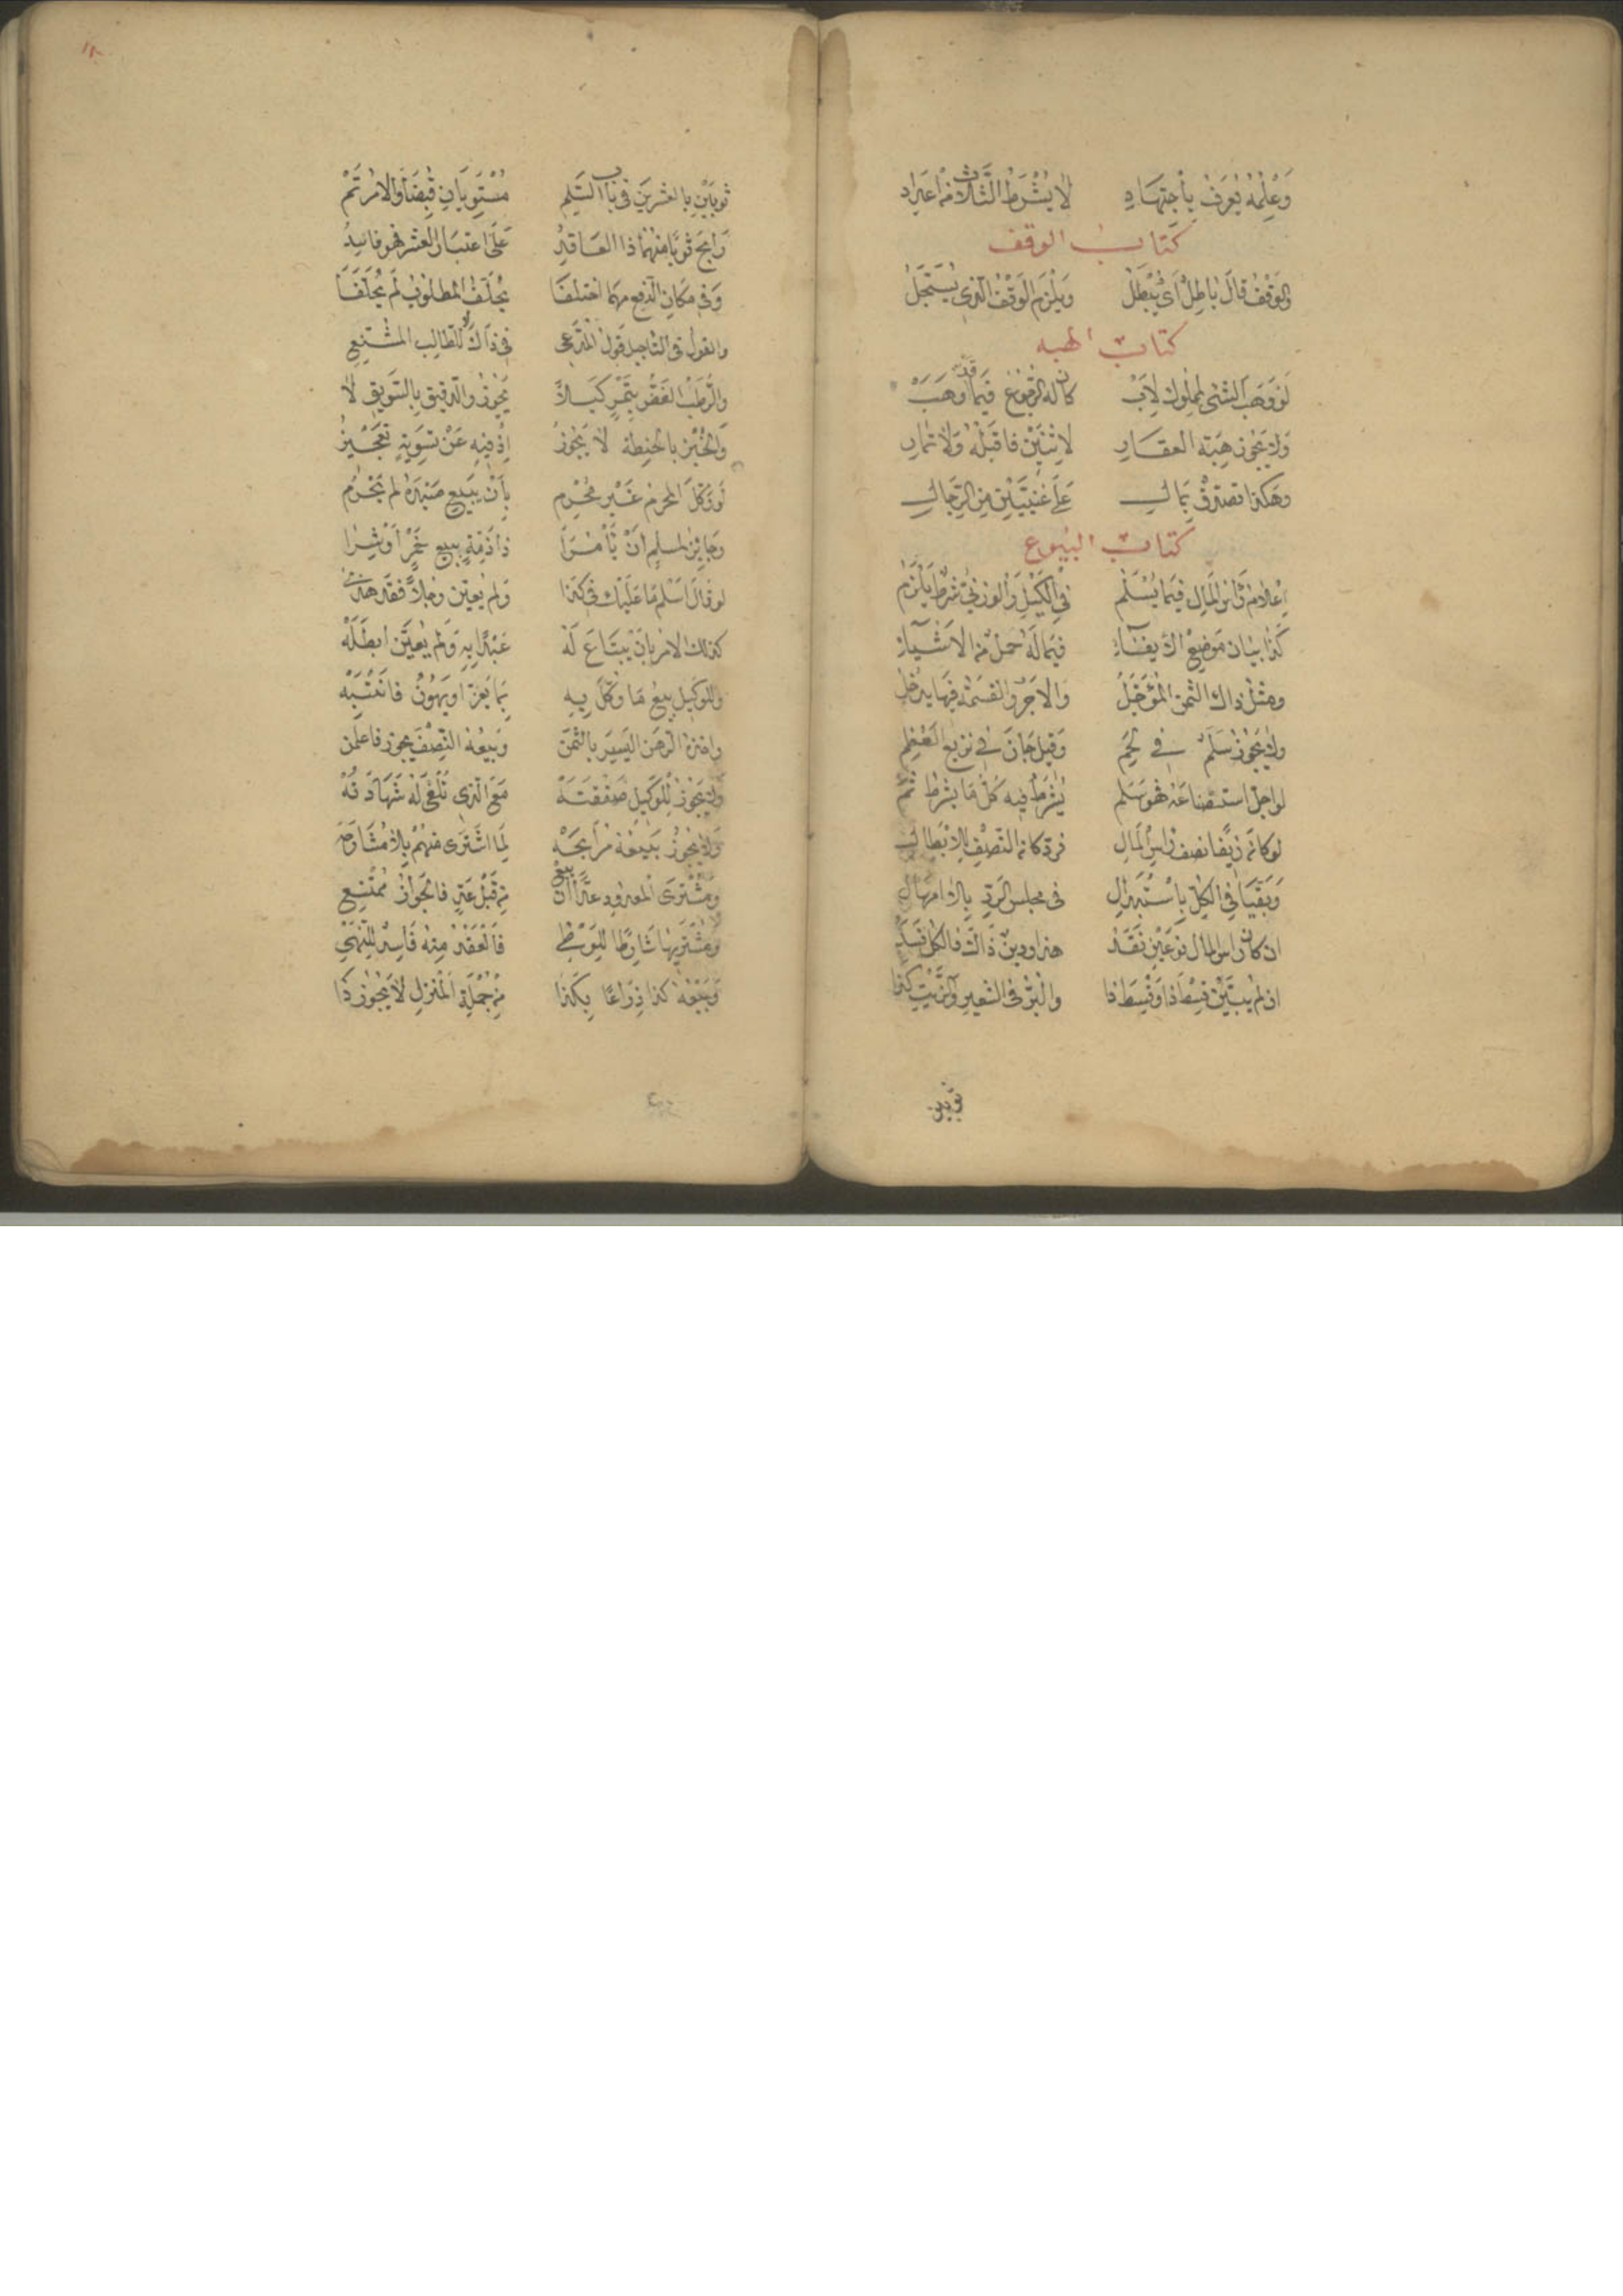 وَعِلْمُهُ يُعْرَفُ بِاجْتِهَادِهِ لَا يُشْرَطُ الثَّلَاثُ مِنْ اعداد
كتاب الوقف
والوَقْفُ قالَ بَاطِلٌ اَىْ يُبْطَلُ وَيَلْزَمُ الوَقْفُ الَّذى يُسَجَّلُ
كتاب الهبه
لَوْ وَهَبَ الشَّىْ لِمَمْلُوكِ لِاَبْ كان له الرُّجُوعُ فِيمَا قَدْ وَهَبْ
وَلَا يَجُوز هِبَة العَقَارِ لِاثْنَيْنِ فاقبَلْهُ وَلَا تمَارِ
وهَكَذا تصَدُّقٌ بِمَالِ عَلَى غَنِيَّيْنِ مِنَ الرِّجَالِ
كتاب البيوع
اِعْلَامُ رَأسِ المَالِ فِيمَا يُسْلَمُ فِى الكَيْلِ وَالوَزنىِّ شرطٌ يَلْزَمُ
كَذَا بَيَان مَوْضِعِ الايفَاءِ فِيمَا لَهُ حَمْلٌ مِن الاَشْيَاءِ
ومثلُ ذاك الثمنُ المُؤَجَّلُ وَالاَجْرُ والقسْمَةُ فِيهَا يَدْخُلُ
ولا يَجُوزُ سَلَمٌ فِى لَحْمِ وَقِيلَ جَازَ فى نزيع العَظمِ
لو اجل استصناعَه فهو سَلم يُشرَطُ فيه كُلُّ مَا يشرطُ ثمَّ
لو كانَ زيفًا نصف رأسِ المَالِ فرد كانَ النّصْف بالابْطَالِ
وَبَقَّيَا فى الكلِّ بِاسْتبدَالِ فى مجلس الرَّدِّ بِلا امهَالِ
ان كان رأس المال نَوعَيْنِ نَقَدْ هذا ودينٌ ذاك فالكلُّ فَسَدْ
ان لم يُبَيِّنْ قِسْطَ ذَا وَقِسْطَ ذا والبُرُّ فى الشعيرِ والزَّيْتِ كذا
ثوبين
ثوبَيْنِ بالعشرينَ فى بابِ السَّلَمِ مُسْتَوِيَانِ قُبِضَا وَالامْرُ تَمْ
رَابَحَ ثَوبًا مِنْهُمَا ذا العَاقِدُ عَلَى اعتبَارِ العشر فهو فاسِدُ
وَفى مَكَانِ الدفعِ مهمَا اختلفَا يُحَلَّفُ المطلوبُ لَمْ يُحَلَّفَا
والقول فى التأجيل قول المدَّعى فى ذاك لا للطالِبِ المُشْنِعِ
والرُّطَبُ الغَضُّ بِتَمْرٍ كَيْلَا يَجُوزُ والدقيق بِالسَّوِيقِ لَا
وَالخُبْزُ بالحِنطةِ لَا يَجُوزُ اِذْ فِيهِ عَنْ تسْوِيَةٍ تعجِيزُ
لَو وَكَّلَ المحرمُ غَيْرَ مُحْرِمِ بِأَنْ يَبِيعَ صَيْدَهُ لم يَحْرُمِ
وَجَائِزٌ لمسلِمٍ اَنْ يَأمُرَا ذَا ذِمَّةٍ ببيعِ خَمْرٍ أوْ شِرَا
لو قالَ اَسْلِمْ مَا عَلَيْكَ فى كَذَا وَلَم يُعَيِّن رَجُلاً فقَد هذى
كذلك الامر بِأَنْ يَبْتَاعَ لَهْ عَبْدًا بِهِ وَلَم يُعَيِّن ابطَلَهْ
وللوكيلِ بيعُ مَا وُكِّلَ بِهِ بِمَا يَعِزُّ اَو يَهُونُ فانتَبِهْ
واخذه الرَهن اليَسِيرَ بالثمَنْ وَبَيعُهُ النِّصْفَ يجوز فاعلَمَن
ولا يجوز لِلْوَكِيلِ صَفْقَتَهْ مَعَ الَّذِى تُلْغَى لَهُ شَهَادَتُهْ
ولا يجوزُ بَيْعُهُ مُرَابَحَهْ لِمَا اشْتَرَى مِنْهُمْ بِلَا
ومُشْتَرِى المعدُودِ عدًّا ان بِيعَ مِنْ قَبْلِ عَدٍّ فالجَوَازُ مُمْتَنِع
وَمُشْتَرِيهَا شَارِطًا لِلوَطْىِ فَالْعَقْدُ مِنْهُ فَاسِدٌ لِلنَّهْىِ
وَبَيْعُهُ كذا ذِرَاعًا بِكَذَا مِنْ جُمْلَةِ المَنْزِلِ لَا يَجُوزُ ذَا